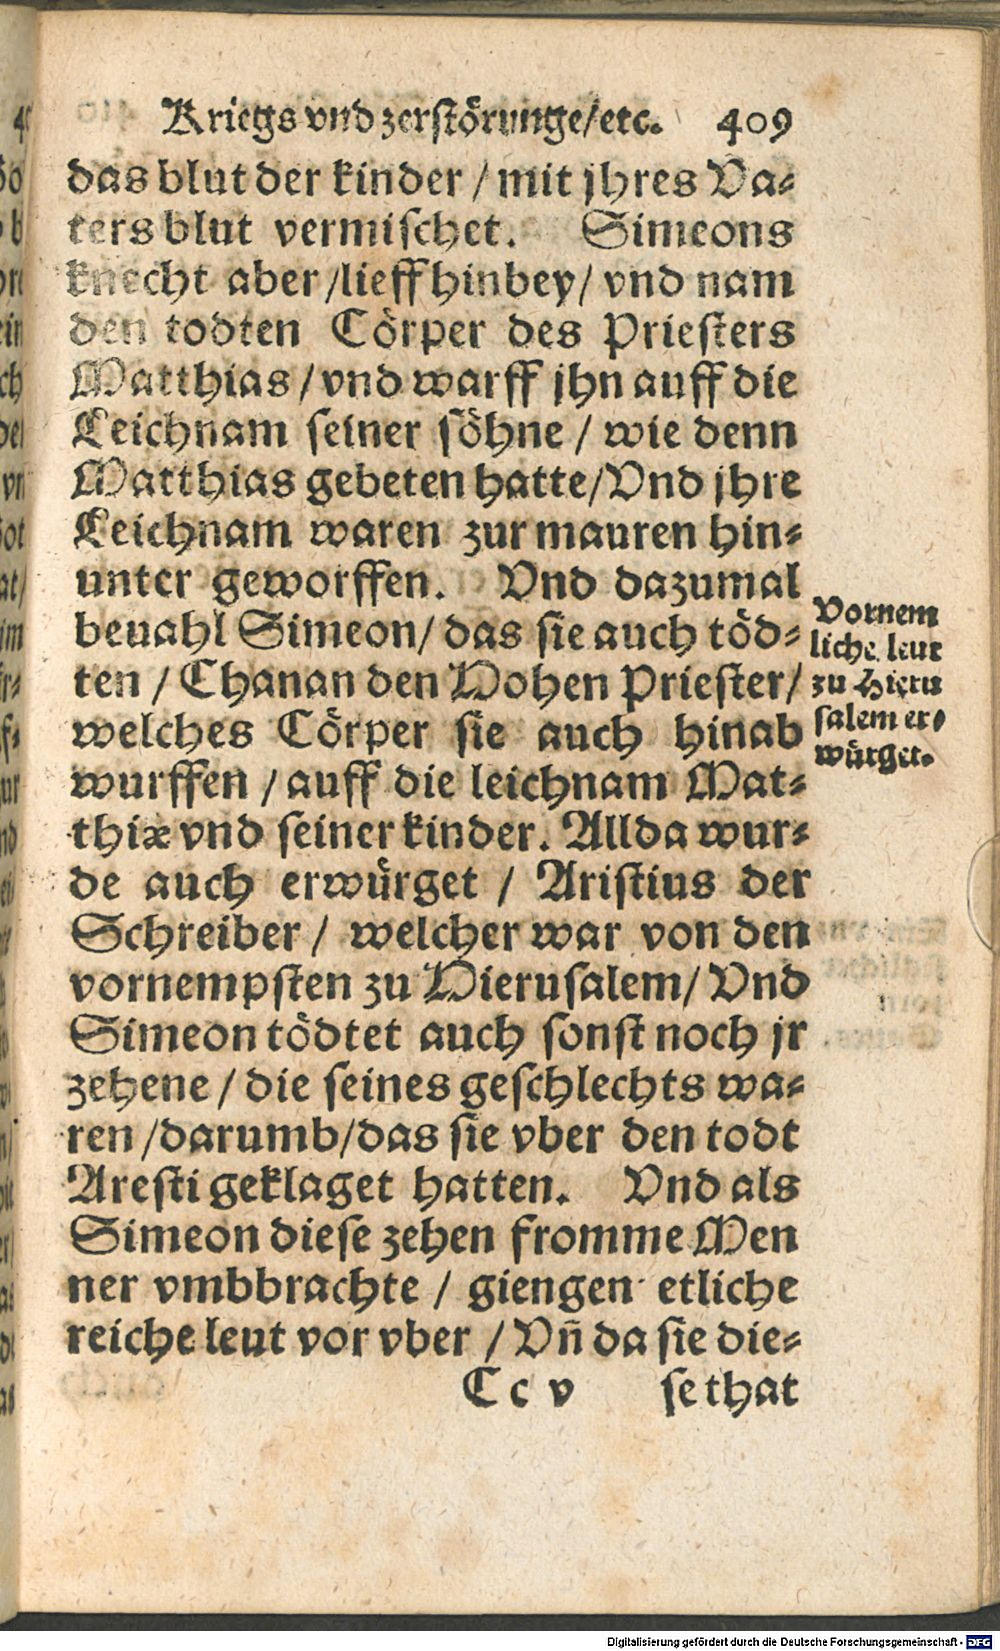 Kriegs vnd zerstörunge/etc. 409
das blut der kinder / mit jhres Va⸗
ters blut vermischet. Simeons
knecht aber /lieff hinbey/ vnd nam
den todten Cörper des Priesters
Matthias / vnd warff jhn auff die
Leichnam seiner söhne / wie denn
Matthias gebeten hatte/Vnd jhre
Leichnam waren zur mauren hin⸗
unter geworffen. Vnd dazumal
beuahl Simeon/ das sie auch töd⸗
ten / Chanan den Hohen Priester/
welches Cörper sie auch hinab
wurffen / auff die leichnam Mat⸗
thiæ vnd seiner kinder. Allda wur⸗
de auch erwürget / Aristius der
Schreiber / welcher war von den
vornempsten zu Hierusalem/ Vnd
Simeon tödtet auch sonst noch jr
zehene / die seines geschlechts wa⸗
ren /darumb/das sie vber den todt
Aresti geklaget hatten. Vnd als
Simeon diese zehen fromme Men
ner vmbbrachte / giengen etliche
reiche leut vor vber / Vn̄ da sie die⸗
C c v se that
Vornem
liche leut
zu Hieru
salem er⸗
würget.
Digitalisierung gefördert durch die Deutsche Forschungsgemeinschaft - DFG